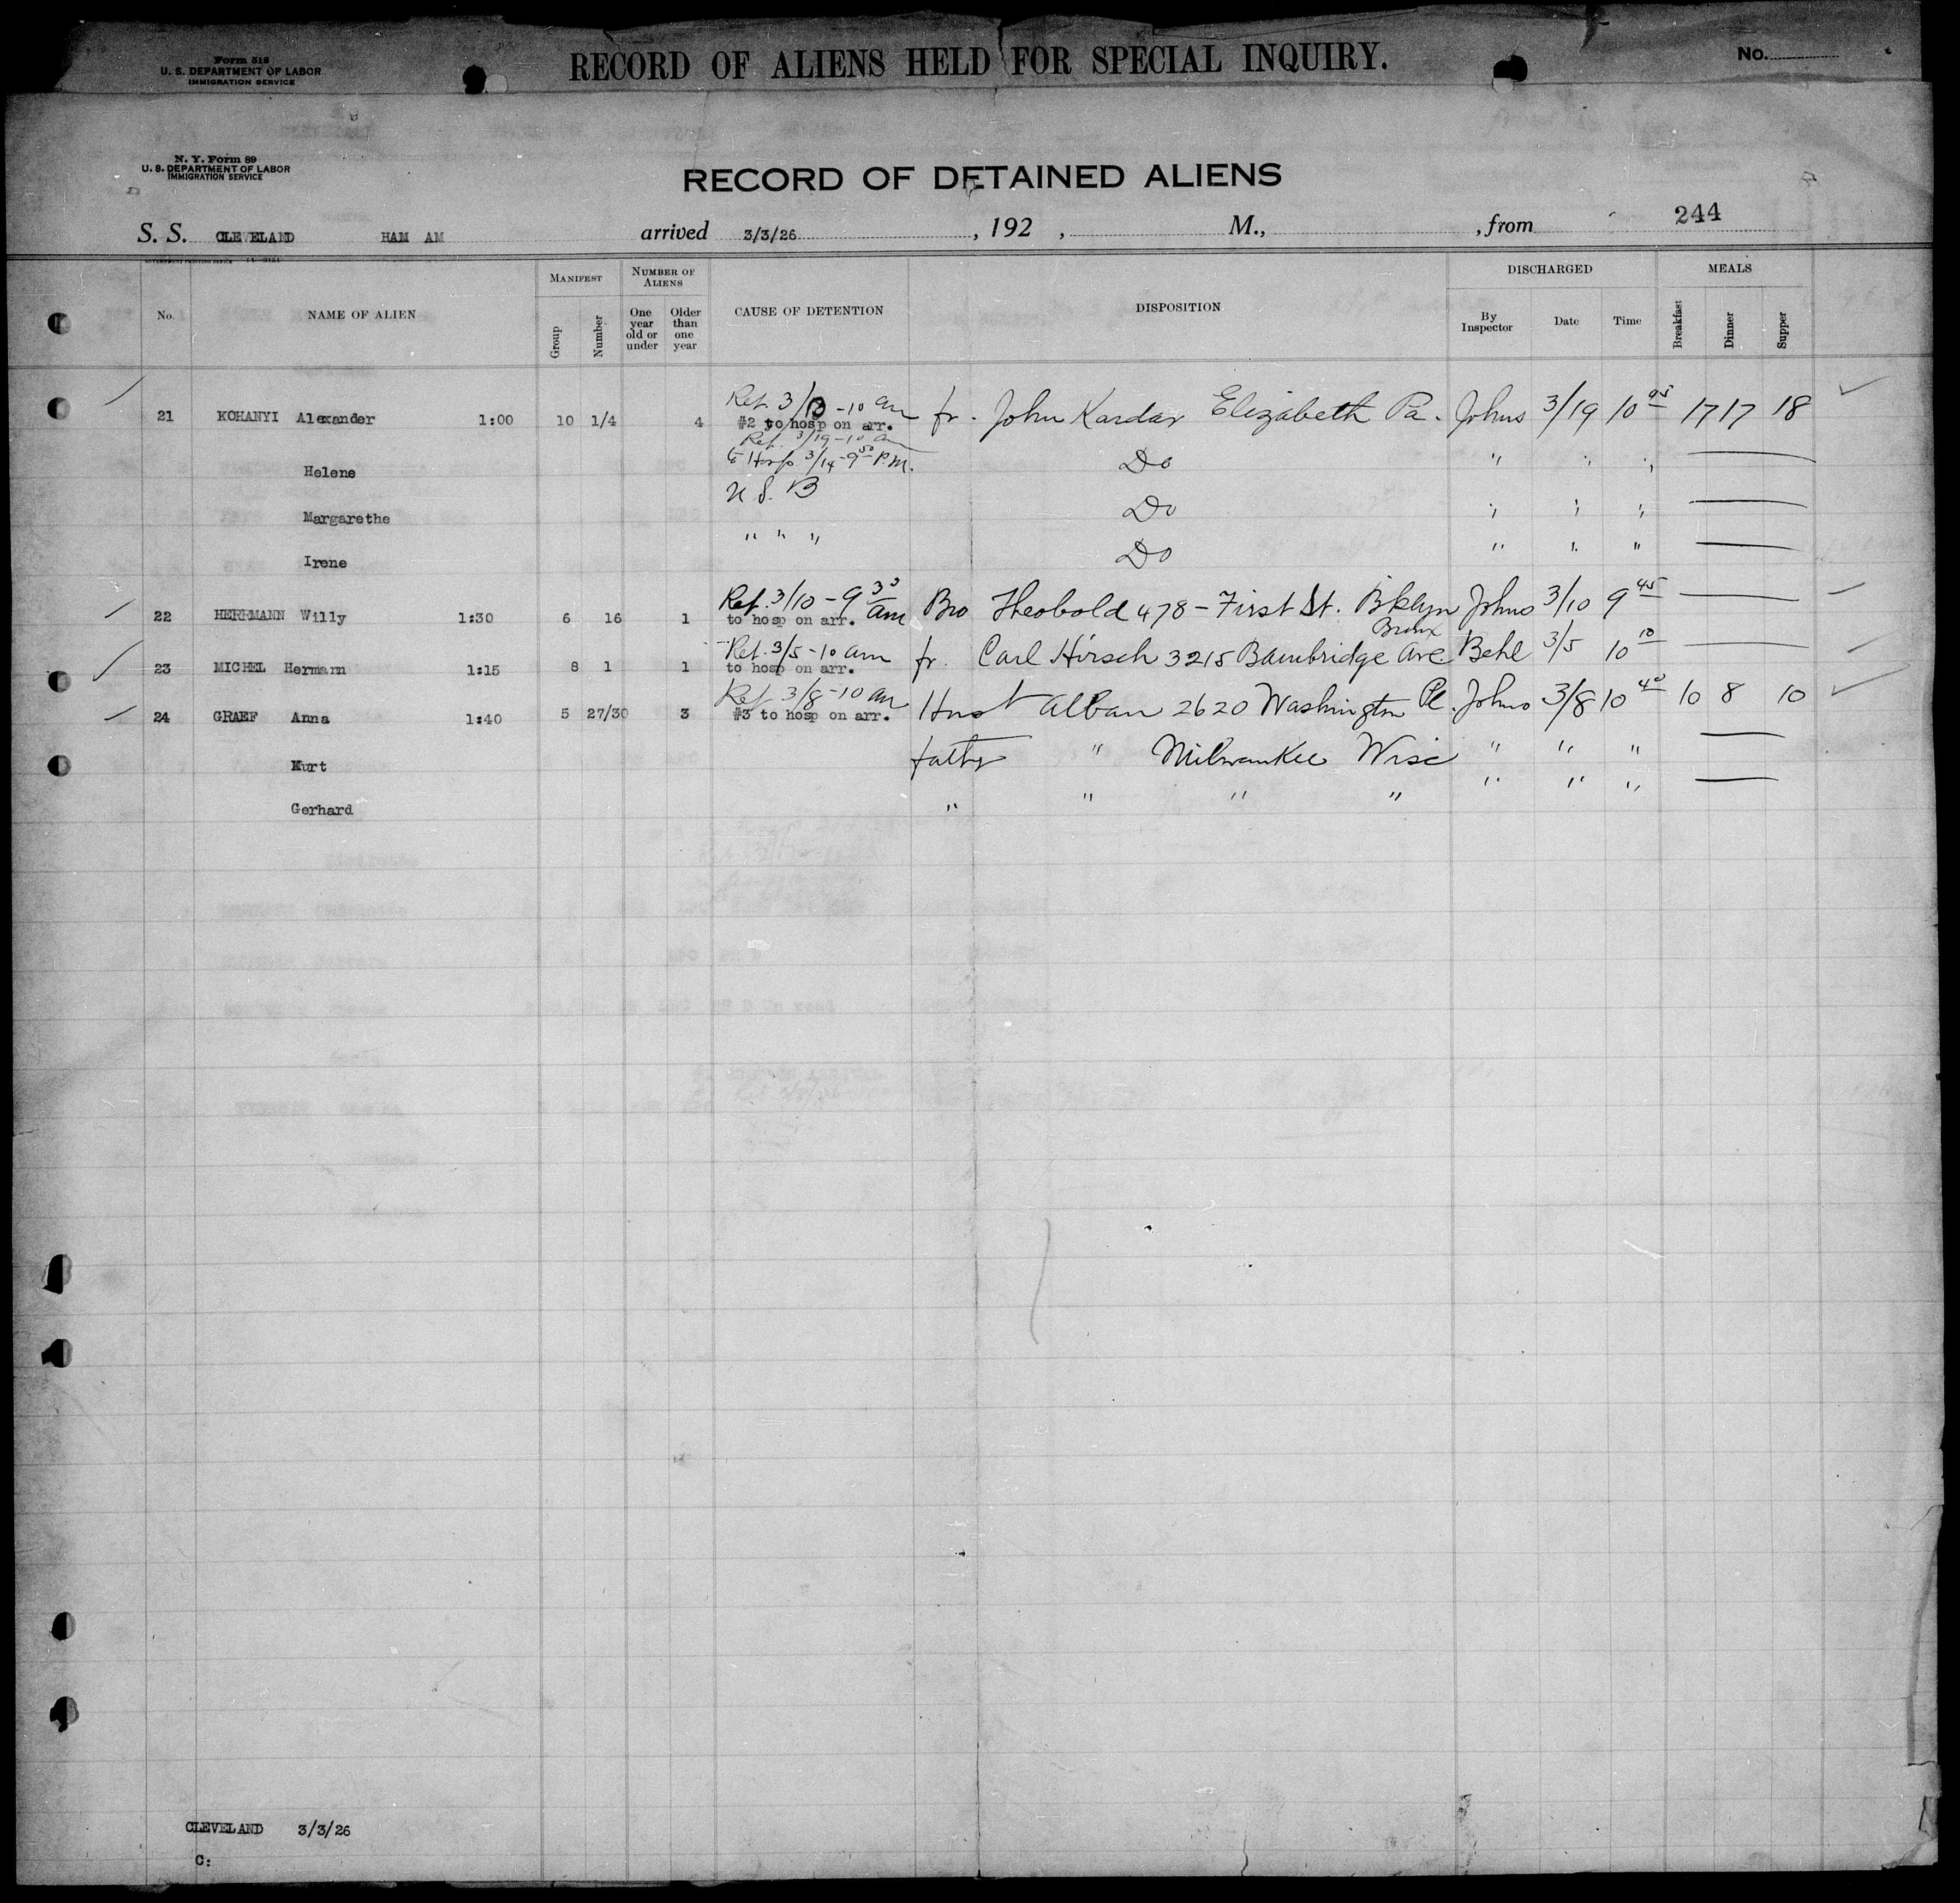 Form 518
U. S. DEPARTMENT OF LABOR
IMMIGRATION SERVICE
RECORD OF ALIENS HELD FOR SPECIAL INQUIRY.
No.
N. Y. Form 89
U. S. DEPARTMENT OF LABOR
IMMIGRATION SERVICE
RECORD OF DETAINED ALIENS
244
S. S. CLEVELAND HAM AM arrived 3/3/26, 192 , M., , from
No. NAME OF ALIEN MANIFEST Group Number NUMBER OF ALIENS One year old or under Older than one year CAUSE OF DETENTION DISPOSITION DISCHARGED By Inspector Date Time MEALS Breakfast Dinner Supper
Ret. 3/13 - 10 am
21 KOHANYI Alexander 1:00 10 1/4 4 #2 to hosp on arr. fr. John Kardar Elizabeth Pa. Johns 3/19 10 45 17 17 18
Ret. 3/19 - 10 am
Helene to Hosp. 3/14 - 9 50 P.M. Do " " "
Margarethe U. S. B Do " " "
Irene " " " Do " " "
Ret. 3/10 - 9 30 am
22 HERRMANN Willy 1:30 6 16 1 to hosp on arr. Bro Theobold 478 - First St. Bklyn Johns 3/10 9 45
Ret. 3/5 - 10 am Bronx
23 MICHEL Hermann 1:15 8 1 1 to hosp on arr. fr. Carl Hirsch 3215 Bambridge Ave. Behl 3/5 10 10
Ret. 3/8 - 10 am
24 GRAEF Anna 1:40 5 27/30 3 #3 to hosp on arr. Husb Alban 2620 Washington Pl. Johns 3/8 10 40 10 8 10
Kurt father " Milwaukee Wisc " " "
Gerhard " " " " " " "
CLEVELAND 3/3/26
C: